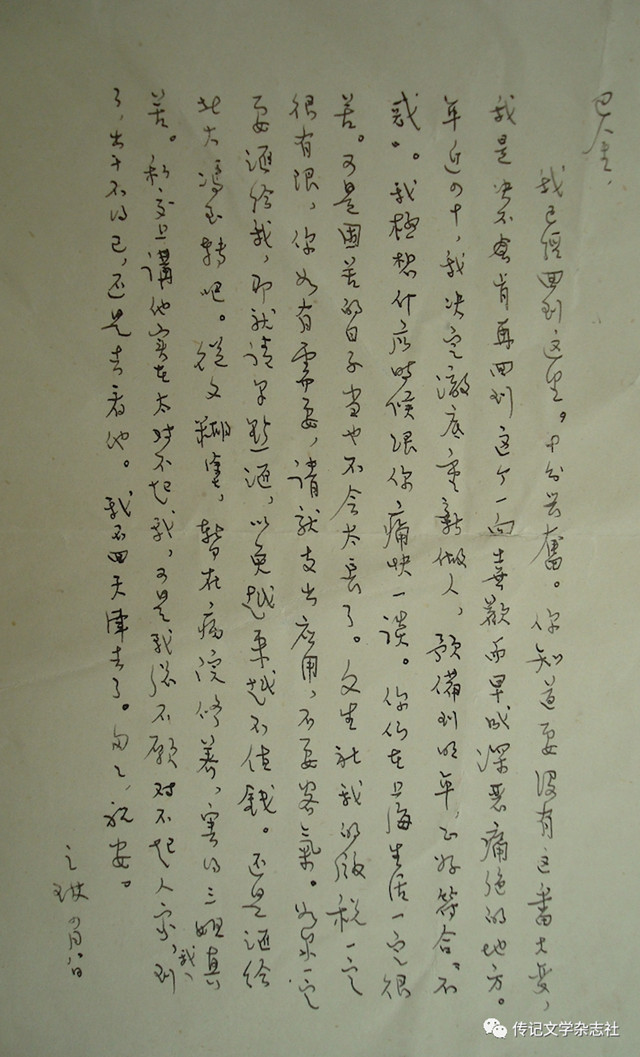 巴金,
我已经回到这里。十分兴奋。你知道要没有这番大变,
我是决不会肯再回到这个一向喜歡而早成深恶痛绝的地方。
年近四十,我决定澈底重新做人,预備到明年,正好符合“不
惑”。我極想什麽時候跟你痛快一談。你们在上海生活一定很
苦。可是困苦的日子当也不会太長了。文生社我的版税一定
很有限,你如有需要,请就支出应用,不要客氣。如果一定
要滙给我,那就请早點滙,以免越来越不值錢。还是滙给
北大馮至转吧。從文糊塗,暫在病院修养,害得三姐真
苦。私交上講他实在太对不起我,可是我总不願对不起人家,到
了,出于不得已,还是去看他。我不回天津去了。匆匆,祝安。
之琳 四月八日
传记文学杂志社